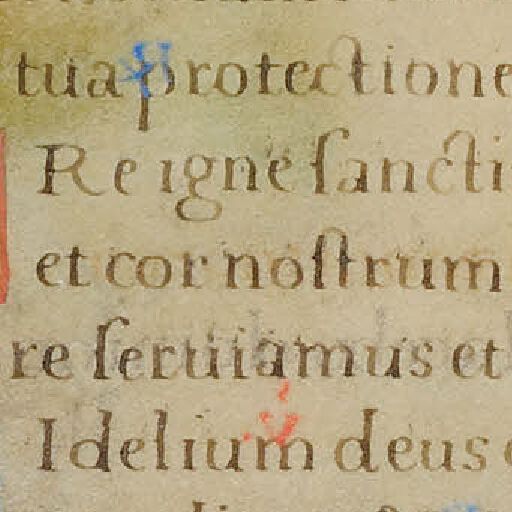 tua protectione
Re igne sancti
et cor nostrum
re seruiamus et
Idelium deus